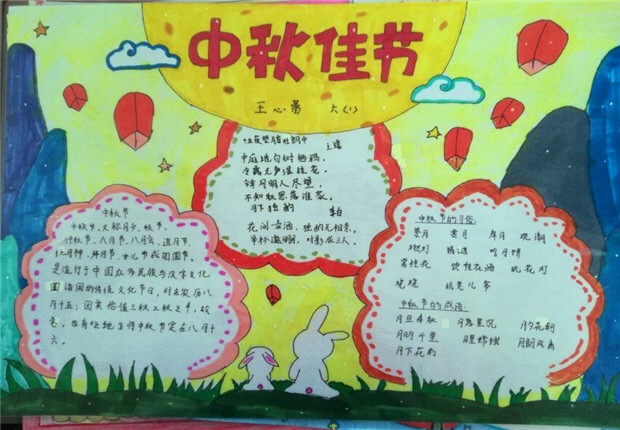 中秋佳节
六(1)
中庭地白树栖鸦,
冷露无声湿桂花。
今夜月明人尽望,
不知秋思落谁家。
月下独酌
李白
花间一壶酒,独酌无相亲。
举杯邀明月,对影成三人。
中秋节
中秋节,又称月夕、秋节、
仲秋节、八月节、八月会、追月节、
玩月节、拜月节、女儿节或团圆节,
是流行于中国众多民族与汉字文化
圈诸国的传统文化节日,时在农历八
月十五;因其恰值三秋之半,故
名,也有些地方将中秋节定在八月十
六。
中秋节的习俗
赏月 观潮
燃灯 猜谜 吃月饼
赏桂花 饮桂花酒 玩花灯
烧塔 玩兔儿爷
中秋节的成语:
月落星沉 月夕花朝
月明千里 月朗风清